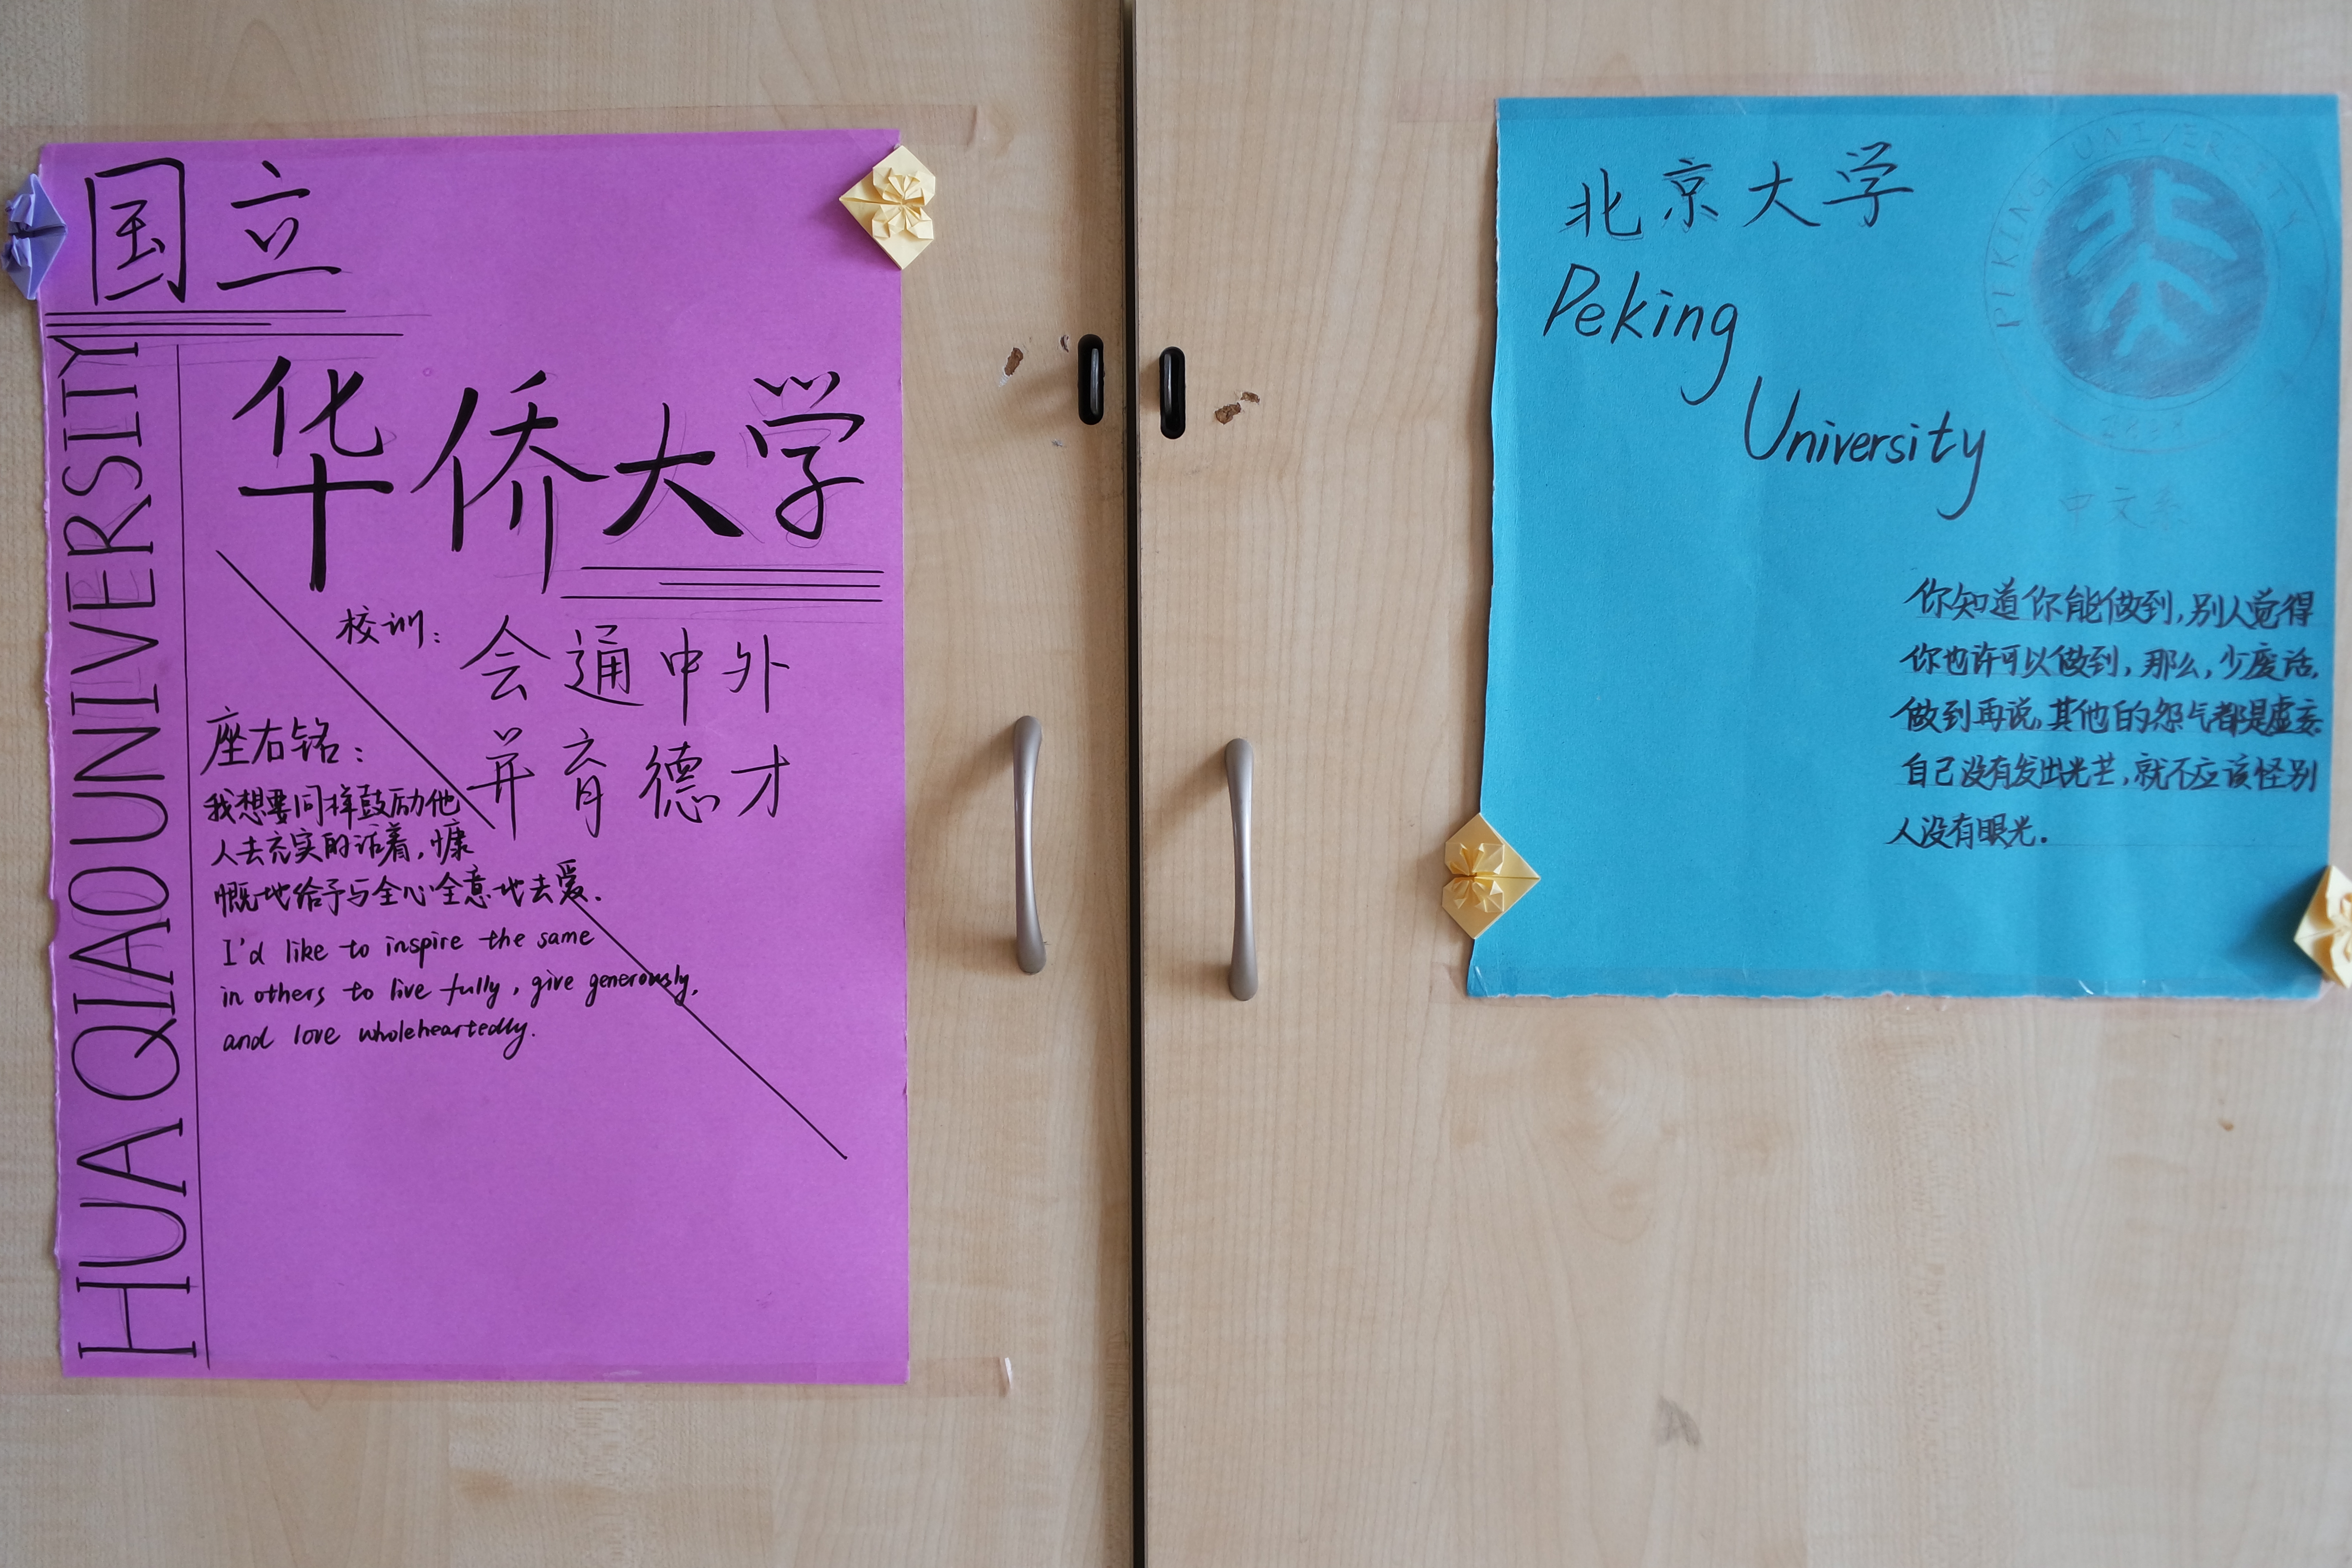 国立
HUA QIAO UNIVERSITY
华侨大学
校训：
会通中外
并育德才
座右铭：
我想要同样鼓励他
人去充实的活着，慷
慨地给予与全心全意地去爱.
I'd like to inspire the same
in others to live fully, give generously,
and love wholeheartedly.
北京大学
Peking
University
PEKING UNIVERSITY
中文系
你知道你能做到,别人觉得
你也许可以做到,那么,少废话,
做到再说,其他的怨气都是虚妄.
自己没有发出光芒,就不应该怪别
人没有眼光.